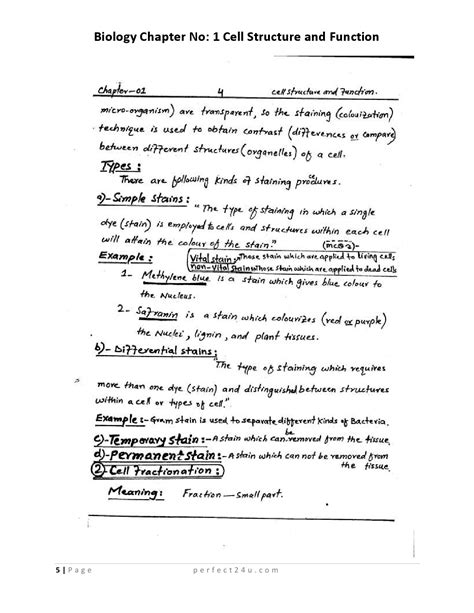 Biology Chapter No: 1 Cell Structure and Function
Chapter-01 4 cell structure and function.
micro-organism) are transparent, so the staining (colouization)
technique is used to obtain contrast (differences or compare)
between different structures (organelles) of a cell.
Types:
There are following kinds of staining procedures.
a)- Simple Stains:
"The type of staining in which a single
dye (stain) is employed to cells and structures within each cell
will attain the colour of the stain." (mcqs)-
Example: Vital stain Those stain which are applied to living cells
non-Vital stain Those stain which are applied to dead cells
1- Methylene blue is a stain which gives blue colour to
the Nucleus.
2- Safranin is a stain which colourizes (red or purple)
the Nuclei, lignin, and plant tissues.
b)- Differential stains:
"The type of staining which requires
more than one dye (stain) and distinguished between structures
within a cell or types of cell."
Example:- Gram stain is used to separate different Kinds of Bacteria.
c)-Temporary Stain:- A stain which can be removed from the tissue.
d)-Permanent Stain:- A stain which can not be removed from
the tissue.
2) Cell Fractionation:
Meaning: Fraction — Small part.
5 | Page perfect24u.com